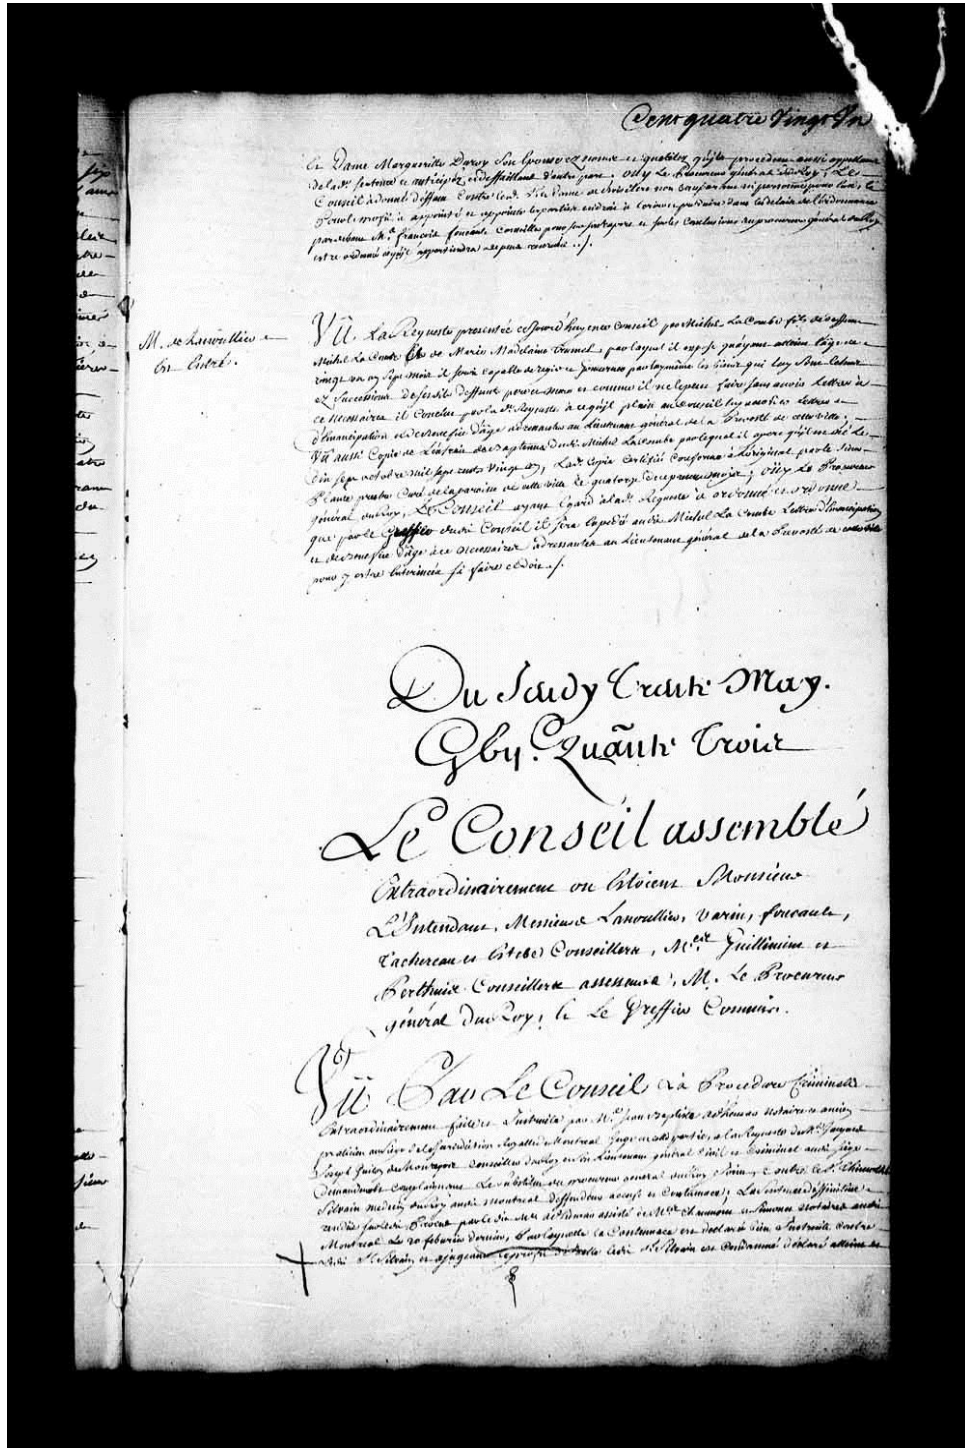 Cent quatre Vingt Un
et Dame Margueritte Duroy Son Epouse ez noms et qualitez qu'ils procedent aussi appellans
de lad. sentence et anticipez, et deffaillans d'autre part. Ouy Le Procureur général du Roy; Le
Conseil a donné deffaut Contre
par devant M.e françois foucault Conseiller pour sur son raport et sur les Conclusions du procureur général du Roy
estre ordonné ce qu'il appartiendra
M. de Lanoullier
En Entré.
Vû La Requeste presentée cejourd'huy en ce Conseil par Michel La Combe fils de deffunt
Michel La Combe Et de Marie Madelaine par laquel il expose qu'ayant atteint l'âge de
vingt un an Sept mois il seroit capable de regir et gouverner par luy même les biens qui luy sont
et Successions de ses dits deffunts pere et mere et comme il ne le peut faire sans avoir Lettres à
ce necessaires il Conclut par lad. Requeste à ce qu'il plaise au Conseil luy accorder Lettres
d'Emancipation et de Benefice d'âge adressantes au Lieutenant général de la Prevosté de cette ville.
Vû aussi Copie de L'extrait de Baptême dudit Michel La Combe par lequel il apert qu'il est né Le
dix sept octobre mil sept cents vingt un, Lad. Copie Certifiée Conforme à L'original par le Sieur
Plante prestre Curé de la paroisse de cette ville le quatorze du present mois; Ouy Le Procureur
général du Roy, Le Conseil ayant Egard à lad. Requeste a ordonné et ordonne
que par le Greffier dudit Conseil il sera Expedié audit Michel La Combe Lettres d'Emancipation
et de Benefice d'âge à ce necessaires adressantes au Lieutenant général de la Prevosté de cette ville
pour y estre Enterinées si faire se doit ./.
Du Jeudy Trente May.
Gbij.C Quãnte Trois
Le Conseil assemblé
Extraordinairement ou Estoient Monsieur
L'Intendant, Messieurs Lanoullier, Varin, foucault,
Tachereau et Estebe Conseillers, M.ers Guillimin et
Perthuis Conseillers assesseurs, M. Le Procureur
général du Roy, Et Le Greffier Commis.
Vû Par Le Conseil La Procedure Criminelle
Extraordinairement faite et Instruite par M.e Jean Baptiste adhemar notaire et ancien
praticien au Siege de la Jurisdiction Royalle de Montreal Juge en cette partie, a la Requeste de M.e Jacques
Joseph Guiton de Monrepos Conseiller du Roy et son Lieutenant général Civil et Criminel audit Siege
Demandeur et complaignant Le Substitut du procureur general du Roy Joint, Contre le S. Thimothée
Silvain médecin du Roy audit Montreal deffendeur accusé et Contumace; La Sentence deffinitive
rendüe sur led. Procés par le dit M.e adhemar assisté de M.es Chaumont et Simonet notaires audit
Montreal Le 20 febvrier dernier, Par laquelle la Contumace est declarée bien Instruite contre
Ledit S. Silvain et ajugeant le profit d'icelle ledit S. Silvain est Condamné déclaré atteint et